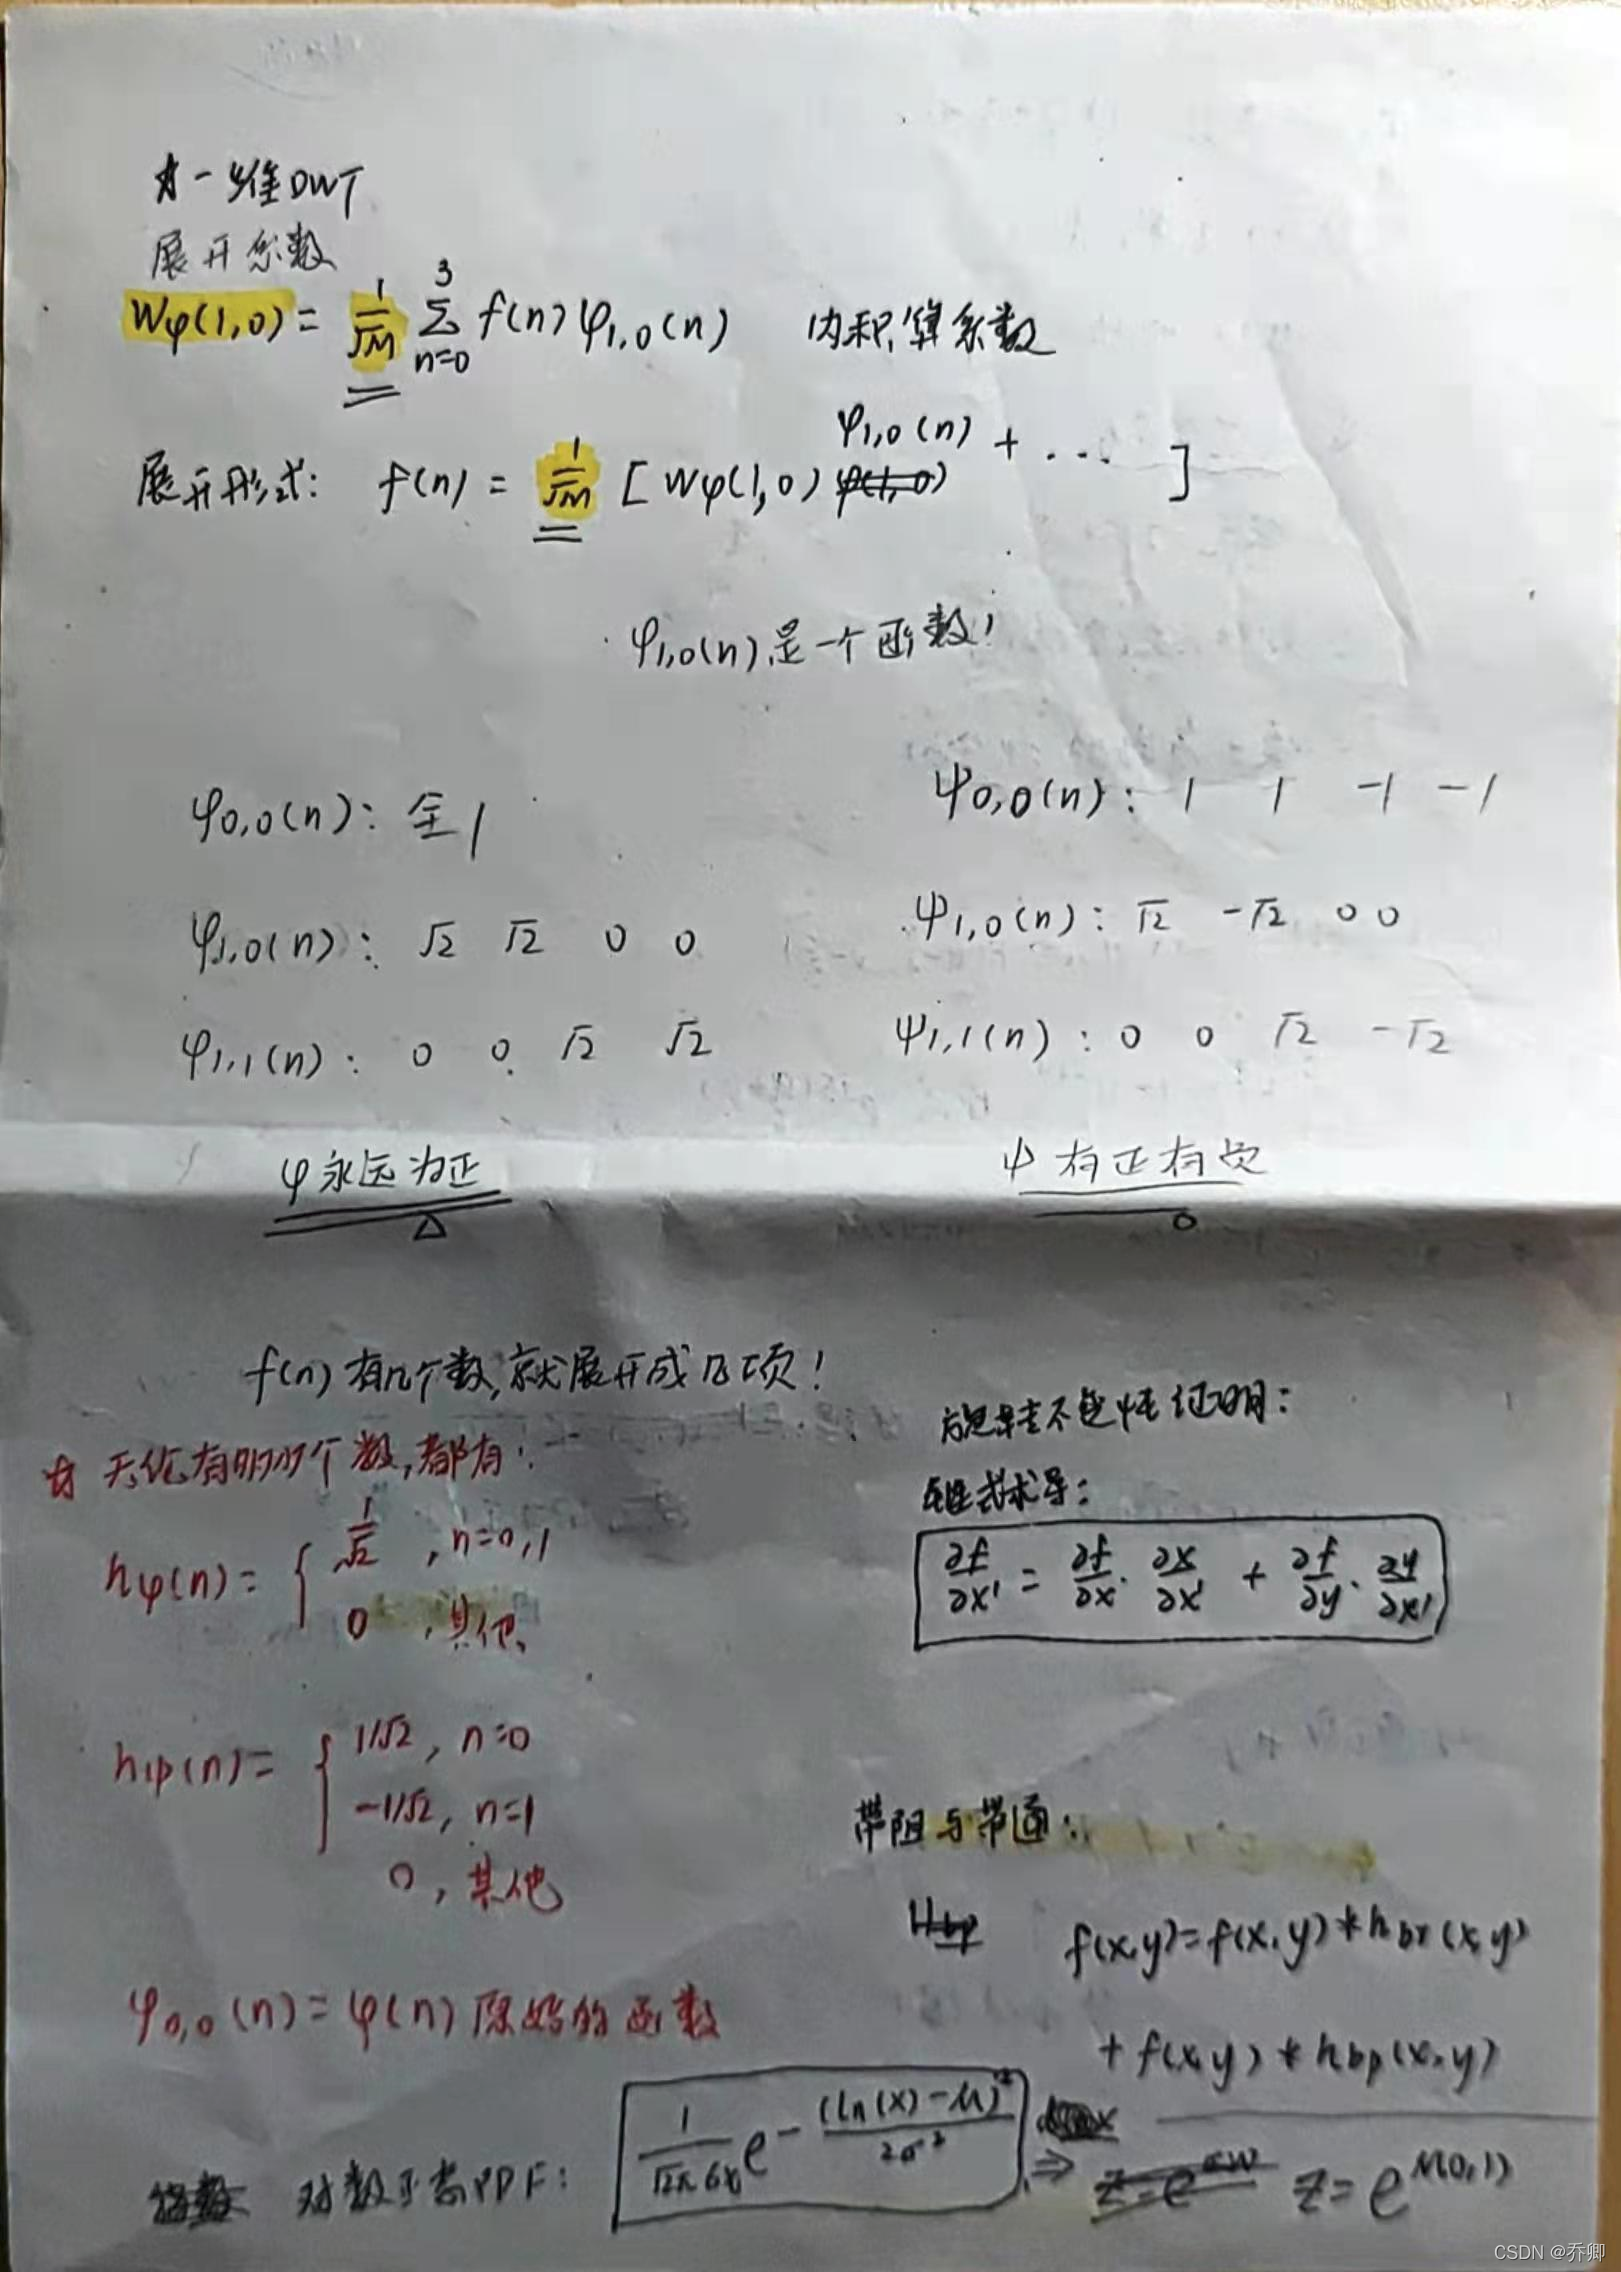 一维DWT
展开系数
Wφ(1,0) = 1/√M Σ(n=0→3) f(n) φ1,0(n) 内积,算系数
展开形式: f(n) = 1/√M [ Wφ(1,0) φ1,0(n) + ... ]
φ1,0(n) 是一个函数!
φ0,0(n): 全1
ψ0,0(n): 1 1 -1 -1
φ1,0(n): √2 √2 0 0
ψ1,0(n): √2 -√2 0 0
φ1,1(n): 0 0 √2 √2
ψ1,1(n): 0 0 √2 -√2
φ永远为正
ψ有正有负
f(n)有几个数,就展开成几项!
☆ 无论有 个数,都有:
hφ(n) = { 1/√2 , n=0,1
0 , 其他
hψ(n) = { 1/√2 , n=0
-1/√2 , n=1
0 , 其他
φ0,0(n) = φ(n) 原始的函数
旋转不变性证明:
链式求导:
∂f/∂x' = ∂f/∂x · ∂x/∂x' + ∂f/∂y · ∂y/∂x'
带阻与带通:
f(x,y)=f(x,y)*hbr(x,y)
+ f(x,y)*hbp(x,y)
对数正态PDF: 1/(√2π σx) e^-((ln(x)-μ)²/2σ²) ⇒ z=e^N(0,1)
CSDN @乔卿